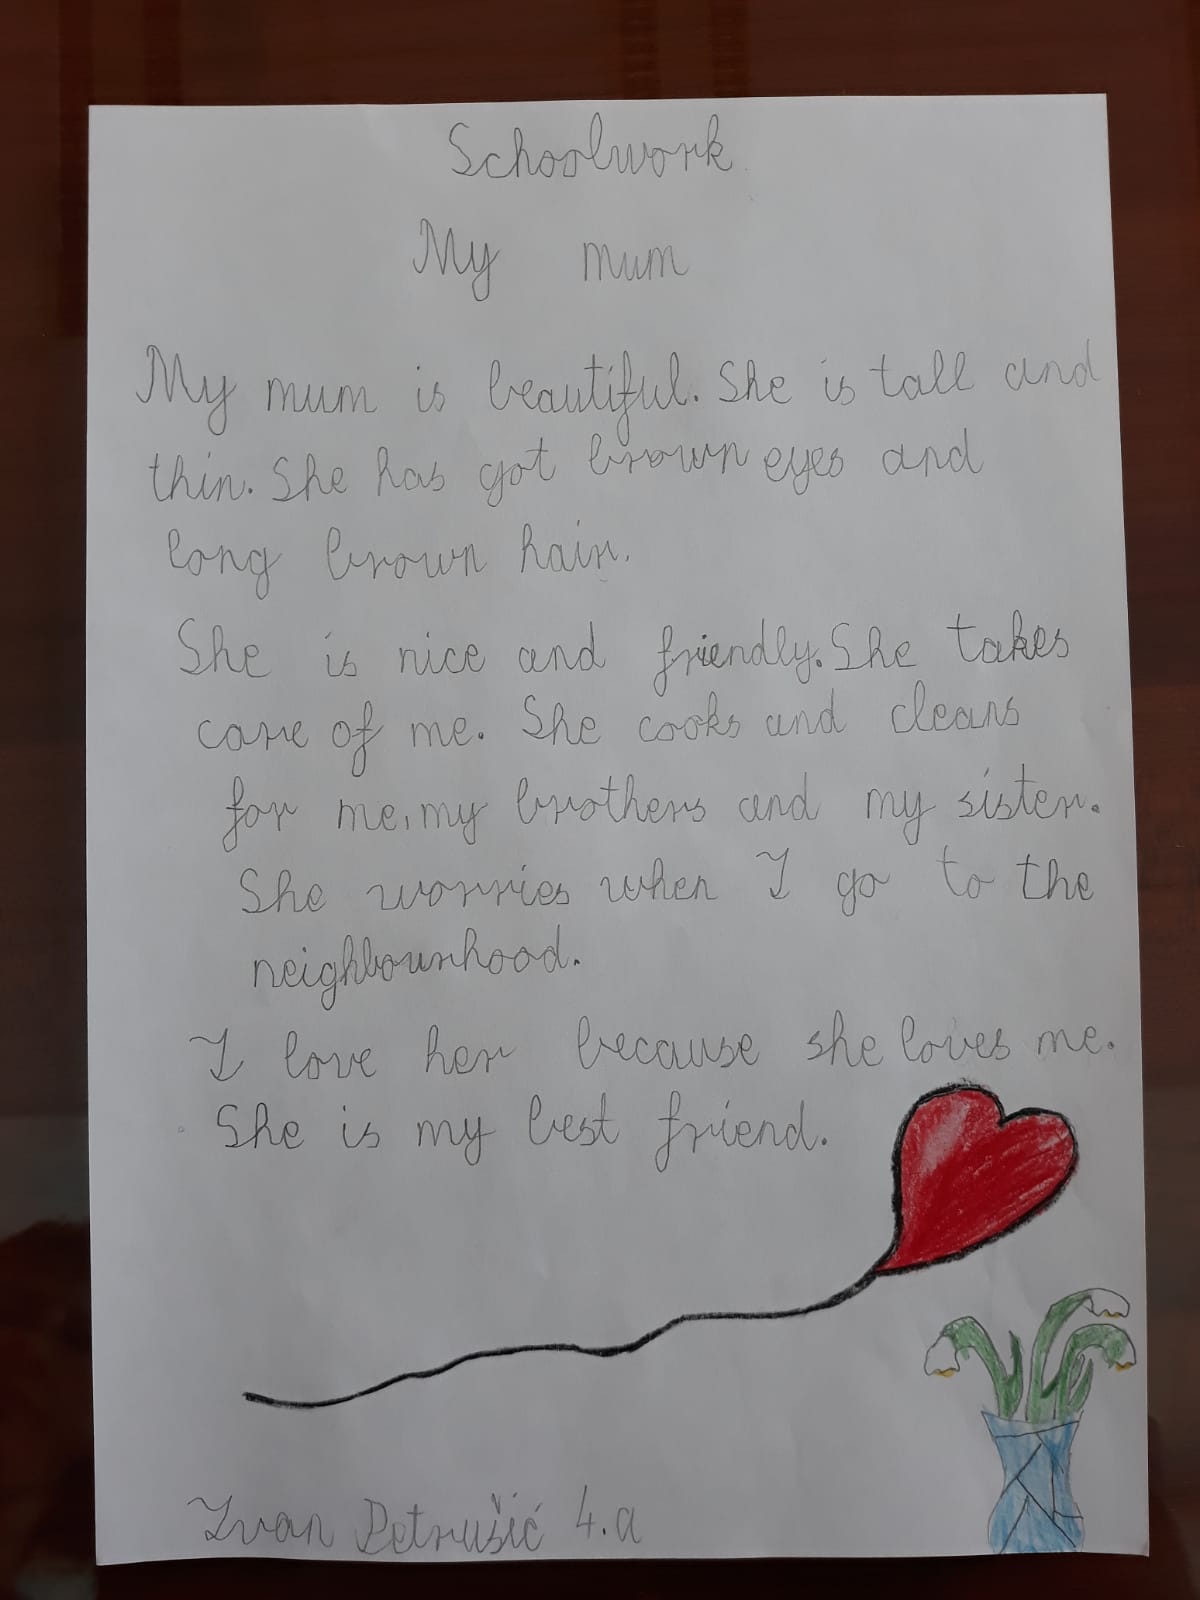 Schoolwork
My mum
My mum is beautiful. She is tall and
thin. She has got brown eyes and
long brown hair.
She is nice and friendly. She takes
care of me. She cooks and cleans
for me, my brothers and my sister.
She worries when I go to the
neighbourhood.
I love her because she loves me.
She is my best friend.
Ivan Petrušić 4.a